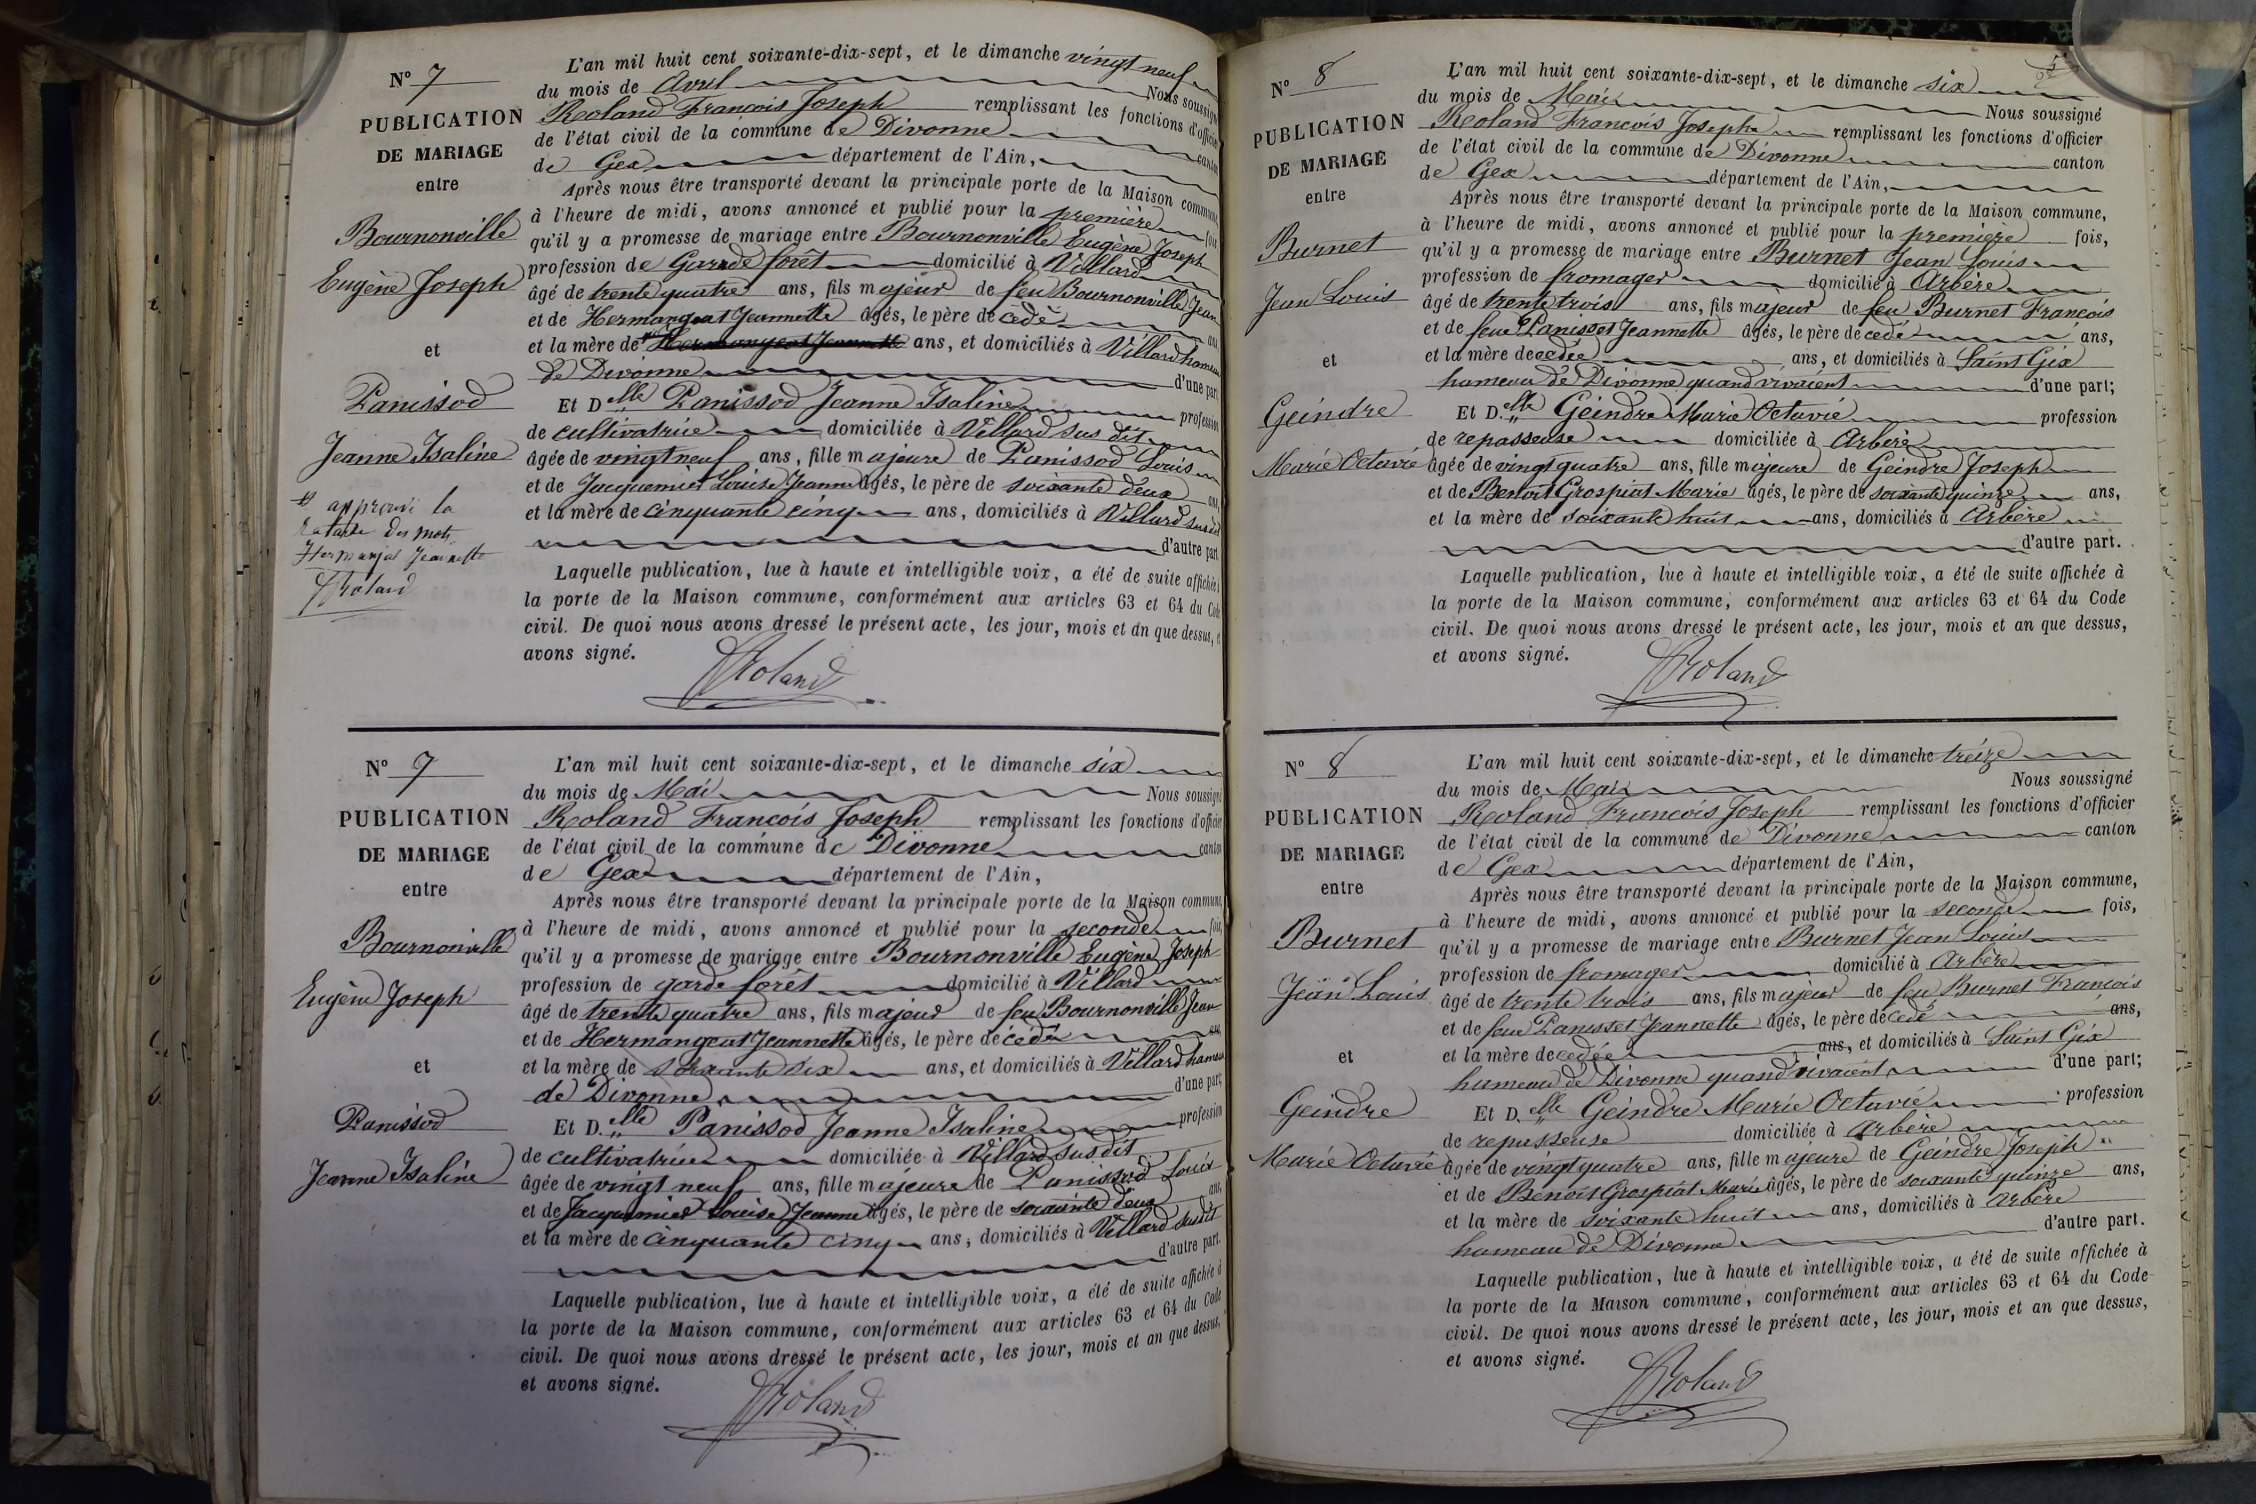 N° 7
PUBLICATION
DE MARIAGE
entre
Bournonville
Eugène Joseph
et
Panissod
Jeanne Isaline
approuvé la
rature des mots
Hermanjat Jeannette
FRoland
L'an mil huit cent soixante-dix-sept, et le dimanche vingt neuf
du mois de Avril Nous soussigné
Roland François Joseph remplissant les fonctions d'officier
de l'état civil de la commune de Divonne canton
de Gex département de l'Ain,
Après nous être transporté devant la principale porte de la Maison commune,
à l'heure de midi, avons annoncé et publié pour la première fois,
qu'il y a promesse de mariage entre Bournonville Eugène Joseph
profession de Garde forêt domicilié à Villard
âgé de trente quatre ans, fils majeur de feu Bournonville Jean
et de Hermangeat Jeannette âgés, le père décedé ans,
et la mère de Hermangeat Jeannette ans, et domiciliés à Villard hameau
de Divonne d'une part;
Et D.elle Panissod Jeanne Isaline profession
de cultivatrice domiciliée à Villard sus dit
âgée de vingt neuf ans, fille majeure de Panissod Louis
et de Jacquemier Louise Jeanne âgés, le père de soixante deux ans,
et la mère de cinquante cinq ans, domiciliés à Villard sus dit
d'autre part.
Laquelle publication, lue à haute et intelligible voix, a été de suite affichée à
la porte de la Maison commune, conformément aux articles 63 et 64 du Code
civil. De quoi nous avons dressé le présent acte, les jour, mois et an que dessus, et
avons signé.
FRoland
N° 7
PUBLICATION
DE MARIAGE
entre
Bournonville
Eugène Joseph
et
Panissod
Jeanne Isaline
L'an mil huit cent soixante-dix-sept, et le dimanche six
du mois de Mai Nous soussigné
Roland François Joseph remplissant les fonctions d'officier
de l'état civil de la commune de Divonne canton
de Gex département de l'Ain,
Après nous être transporté devant la principale porte de la Maison commune,
à l'heure de midi, avons annoncé et publié pour la seconde fois,
qu'il y a promesse de mariage entre Bournonville Eugène Joseph
profession de garde forêt domicilié à Villard
âgé de trente quatre ans, fils majeur de feu Bournonville Jean
et de Hermangeat Jeannette âgés, le père décédé ans,
et la mère de soixante six ans, et domiciliés à Villard hameau
de Divonne d'une part;
Et D.elle Panissod Jeanne Isaline profession
de cultivatrice domiciliée à Villard sus dit
âgée de vingt neuf ans, fille majeure de Panissod Louis
et de Jacquemier Louise Jeanne âgés, le père de soixante deux ans,
et la mère de cinquante cinq ans, domiciliés à Villard susdit
d'autre part.
Laquelle publication, lue à haute et intelligible voix, a été de suite affichée à
la porte de la Maison commune, conformément aux articles 63 et 64 du Code
civil. De quoi nous avons dressé le présent acte, les jour, mois et an que dessus,
et avons signé.
FRoland
N° 8
PUBLICATION
DE MARIAGE
entre
Burnet
Jean Louis
et
Geindre
Marie Octavie
L'an mil huit cent soixante-dix-sept, et le dimanche six
du mois de Mai Nous soussigné
Roland François Joseph remplissant les fonctions d'officier
de l'état civil de la commune de Divonne canton
de Gex département de l'Ain,
Après nous être transporté devant la principale porte de la Maison commune,
à l'heure de midi, avons annoncé et publié pour la première fois,
qu'il y a promesse de mariage entre Burnet Jean Louis
profession de fromager domicilié à Arbère
âgé de trente trois ans, fils majeur de feu Burnet François
et de feue Panisset Jeannette âgés, le père décedé ans,
et la mère decedée ans, et domiciliés à Saint Gix
hameau de Divonne quand vivaient d'une part;
Et D.elle Geindre Marie Octavie profession
de repasseuse domiciliée à Arbère
âgée de vingt quatre ans, fille majeure de Geindre Joseph
et de Benoit Grospiat Marie âgés, le père de soixante quinze ans,
et la mère de soixante huit ans, domiciliés à Arbère
d'autre part.
Laquelle publication, lue à haute et intelligible voix, a été de suite affichée à
la porte de la Maison commune, conformément aux articles 63 et 64 du Code
civil. De quoi nous avons dressé le présent acte, les jour, mois et an que dessus,
et avons signé.
FRoland
N° 8
PUBLICATION
DE MARIAGE
entre
Burnet
Jean Louis
et
Geindre
Marie Octavie
L'an mil huit cent soixante-dix-sept, et le dimanche treize
du mois de Mai Nous soussigné
Roland François Joseph remplissant les fonctions d'officier
de l'état civil de la commune de Divonne canton
de Gex département de l'Ain,
Après nous être transporté devant la principale porte de la Maison commune,
à l'heure de midi, avons annoncé et publié pour la seconde fois,
qu'il y a promesse de mariage entre Burnet Jean Louis
profession de fromager domicilié à Arbère
âgé de trente trois ans, fils majeur de feu Burnet François
et de feue Panisset Jeannette âgés, le père décedé ans,
et la mère decedée ans, et domiciliés à Saint Gix
hameau de Divonne quand vivaient d'une part;
Et D.elle Geindre Marie Octavie profession
de repasseuse domiciliée à Arbère
âgée de vingt quatre ans, fille majeure de Geindre Joseph
et de Benoit Grospiat Marie âgés, le père de soixante quinze ans,
et la mère de soixante huit ans, domiciliés à Arbère
hameau de Divonne d'autre part.
Laquelle publication, lue à haute et intelligible voix, a été de suite affichée à
la porte de la Maison commune, conformément aux articles 63 et 64 du Code
civil. De quoi nous avons dressé le présent acte, les jour, mois et an que dessus,
et avons signé.
FRoland